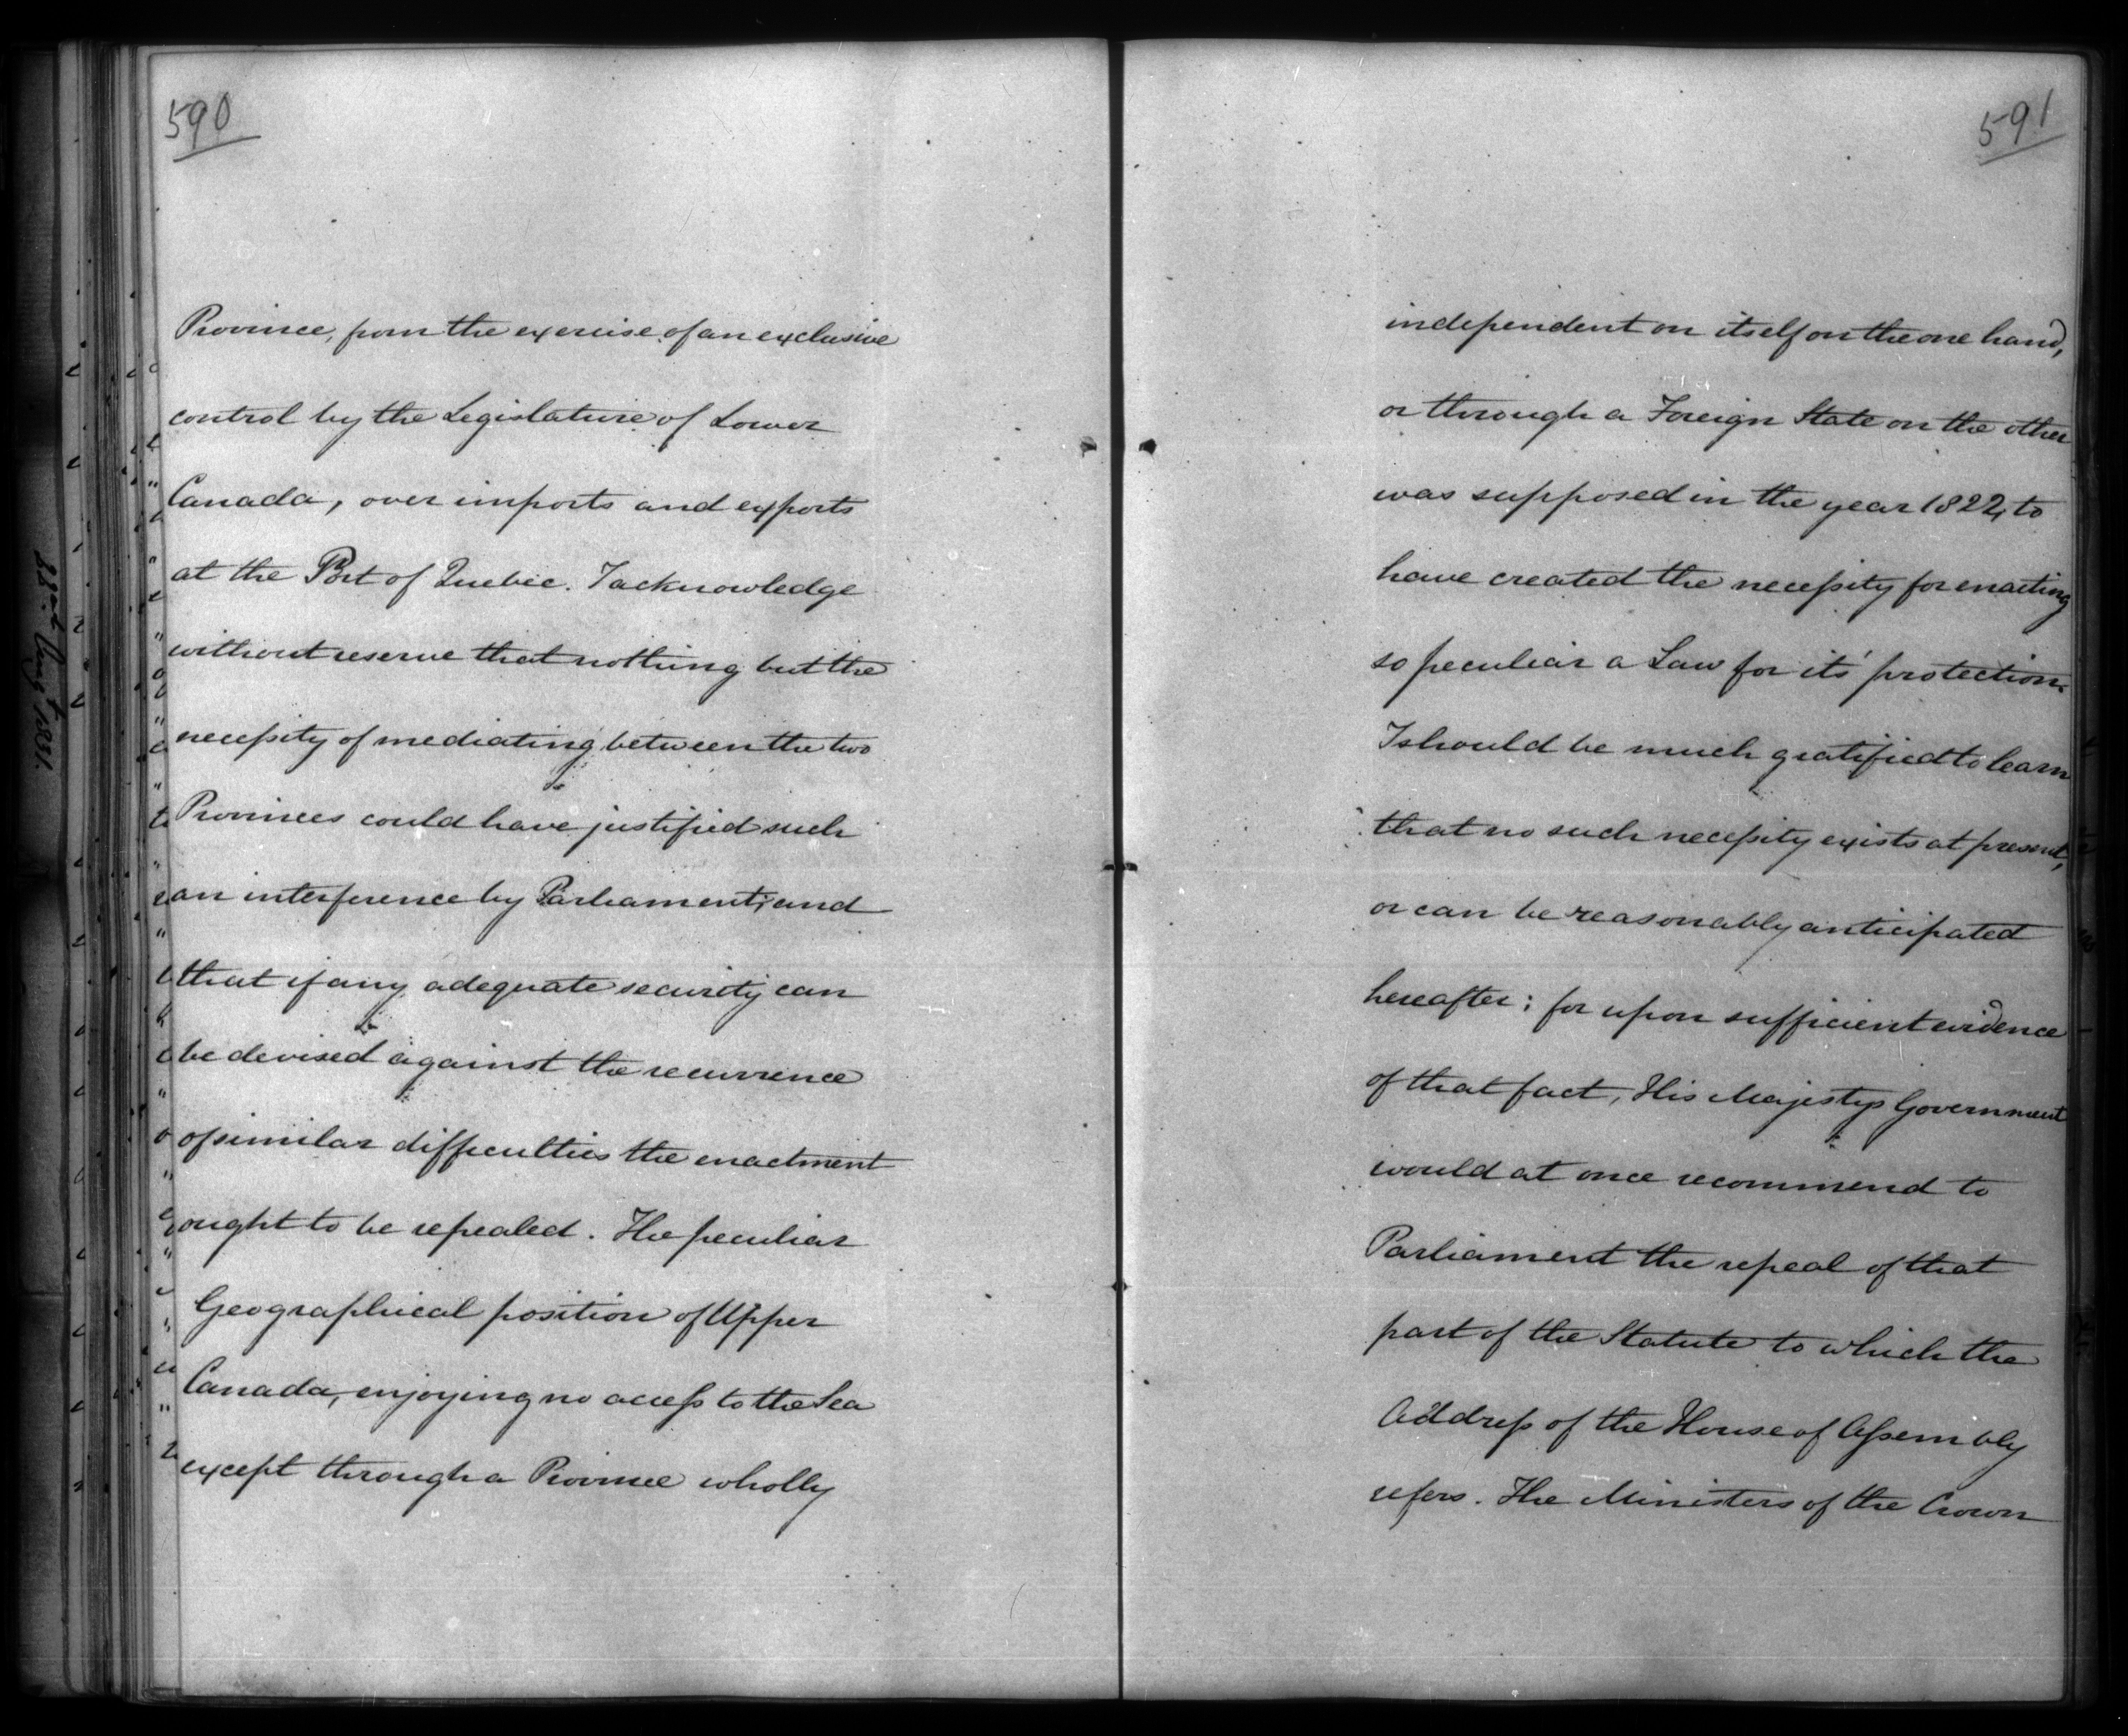 590
Province, from the exercise of an exclusive
control by the Legislature of Lower
Canada, over imports and exports
at the Port of Quebec. I acknowledge
without reserve that nothing but the
necessity of mediating between the two
Provinces could have justified such
an interference by Parliament; and
that if any adequate security can
be devised against the recurrence
of similar difficulties the enactment
ought to be repealed. The peculiar
Geographical position of Upper
Canada, enjoying no access to the Sea
except through a Province wholly
591
independent on itself on the one hand,
or through a Foreign State on the other
was supposed in the year 1822, to
have created the necessity for enacting
so peculiar a Law for its' protection.
I should be much gratified to learn
that no such necessity exists at present,
or can be reasonably anticipated
hereafter; for upon sufficient evidence
of that fact, His Majestys Government
would at once recommend to
Parliament the repeal of that
part of the Statute to which the
Address of the House of Assembly
refers. The Ministers of the Crown
Augt 1831.